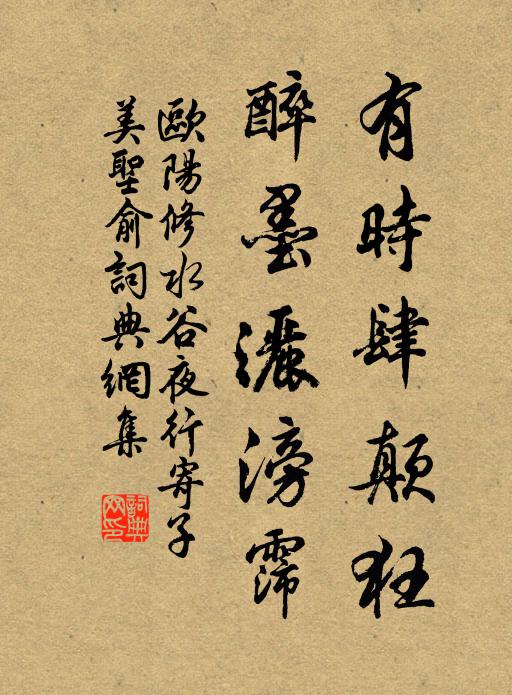 有時肆顛狂
醉墨灑滂霈
歐陽修水谷夜行寄子
美聖俞詞典網集
詞典
网印